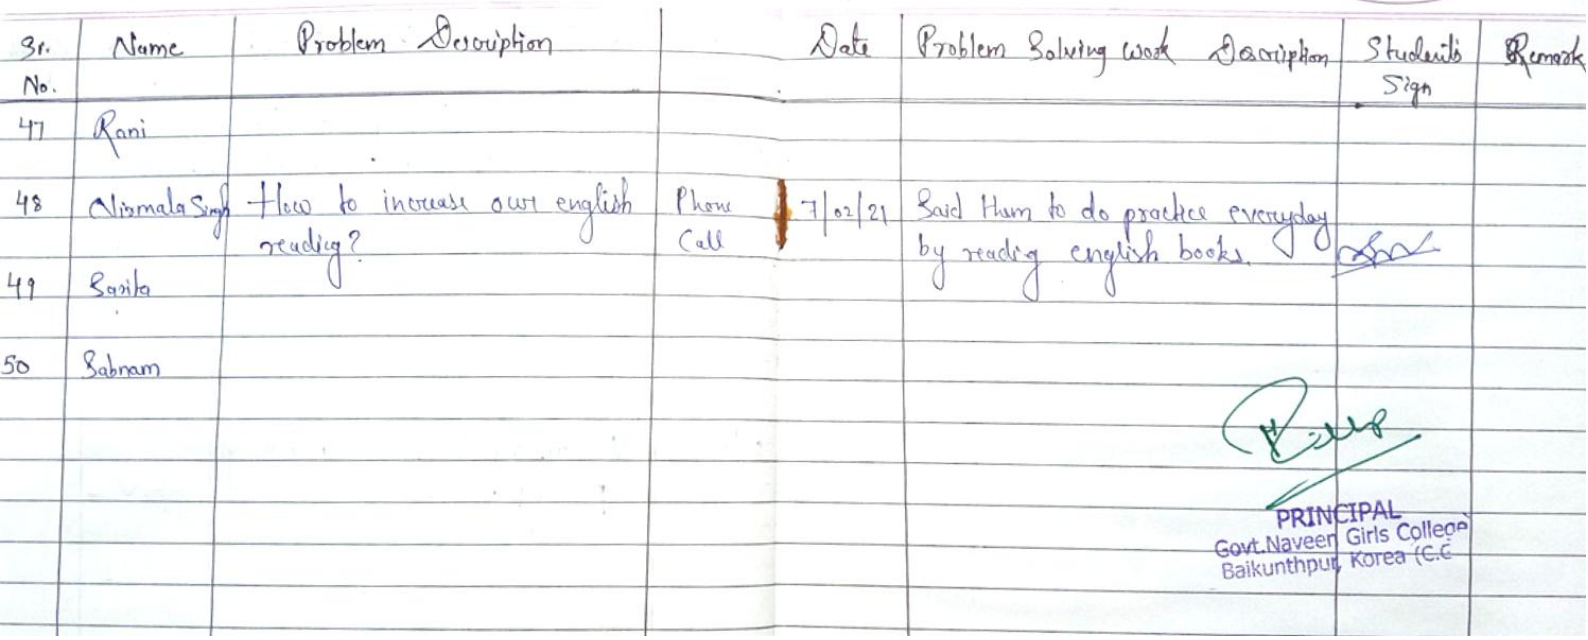 Sr. Name Problem Description Date Problem Solving work Description Student's Remark
No. Sign
47 Rani
48 Nirmala Singh How to increase our english Phone 7/02/21 Said Them to do practice everyday
readig? Call by readig english books.
49 Sarita
50 Sabnam
PRINCIPAL
Govt.Naveen Girls College
Baikunthpur, Korea (C.G